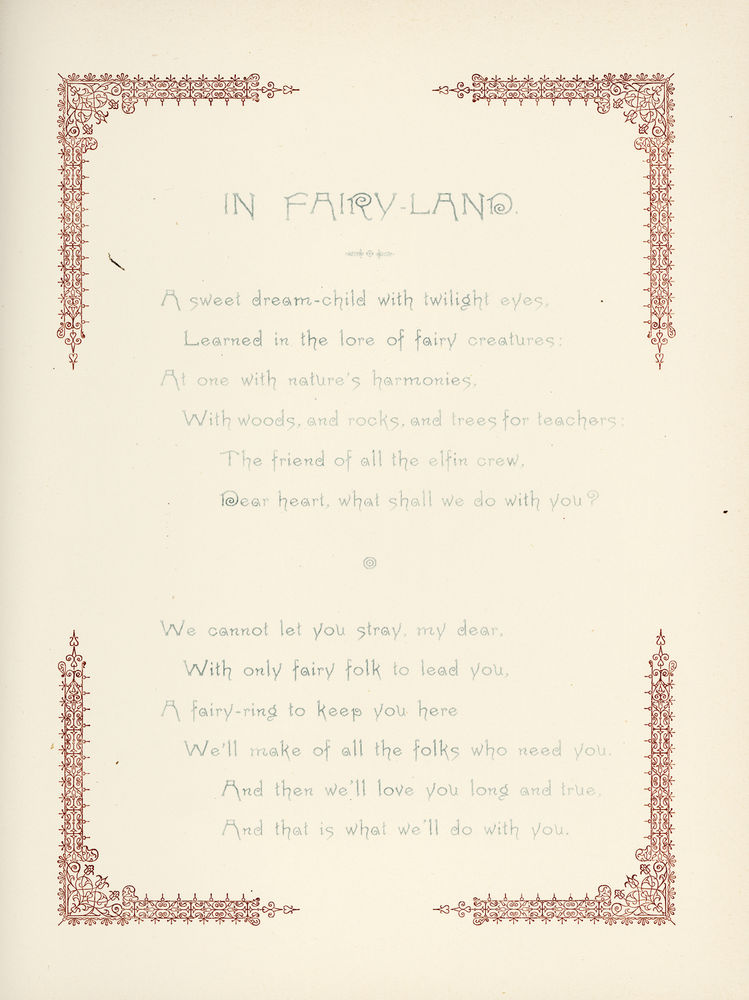 IN FAIRY-LAND.
A sweet dream-child with twilight eyes,
Learned in the lore of fairy creatures:
At one with nature's harmonies,
With woods, and rocks, and trees for teachers:
The friend of all the elfin crew,
Dear heart, what shall we do with you?
We cannot let you stray, my dear,
With only fairy folk to lead you,
A fairy-ring to keep you here
We'll make of all the folks who need you.
And then we'll love you long and true,
And that is what we'll do with you.